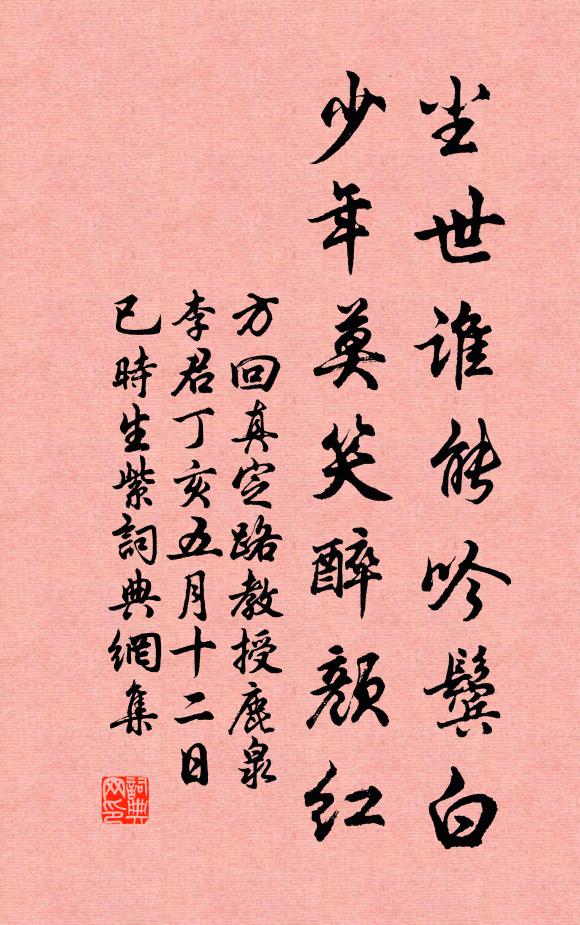 尘世谁能吟鬓白
少年莫笑醉颜红
方回真定路教授鹿泉
李君丁亥五月十二日
已時生紫詞典網集
詞典網印